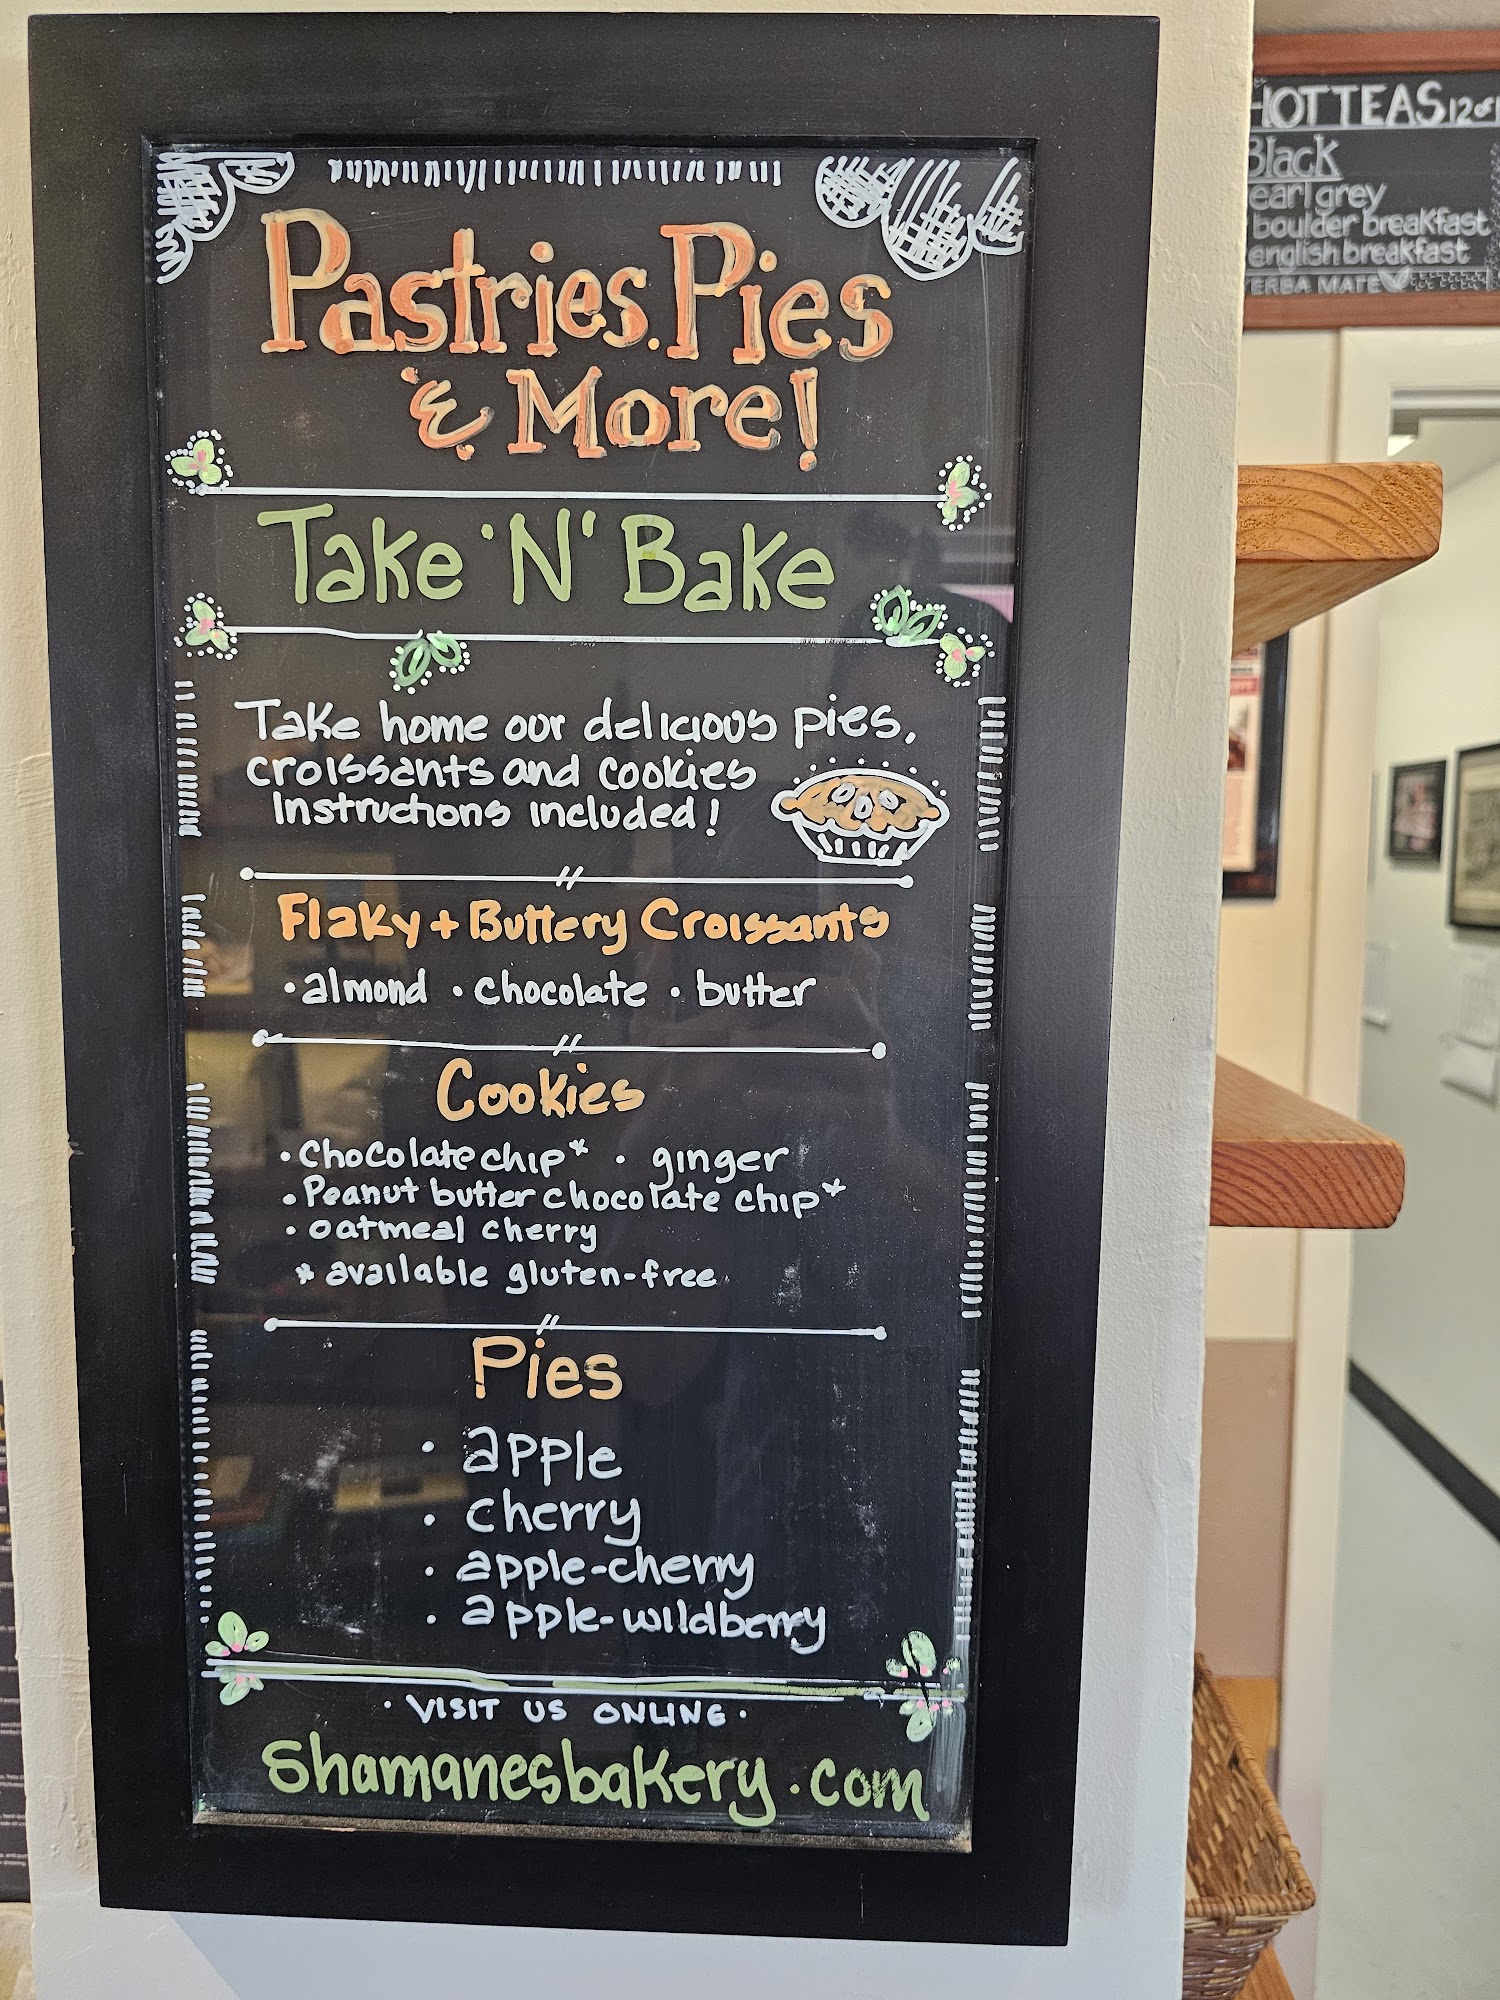 Pastries. Pies
& More!
Take 'N' Bake
Take home our delicious pies,
croissants and cookies
Instructions included!
Flaky + Buttery Croissants
· almond · chocolate · butter
Cookies
· chocolate chip* · ginger
· Peanut butter chocolate chip*
· oatmeal cherry
* available gluten-free
Pies
· apple
· cherry
· apple-cherry
· apple-wildberry
· VISIT US ONLINE ·
shamanesbakery.com
HOT TEAS 12oz
Black
earl grey
boulder breakfast
english breakfast
YERBA MATE